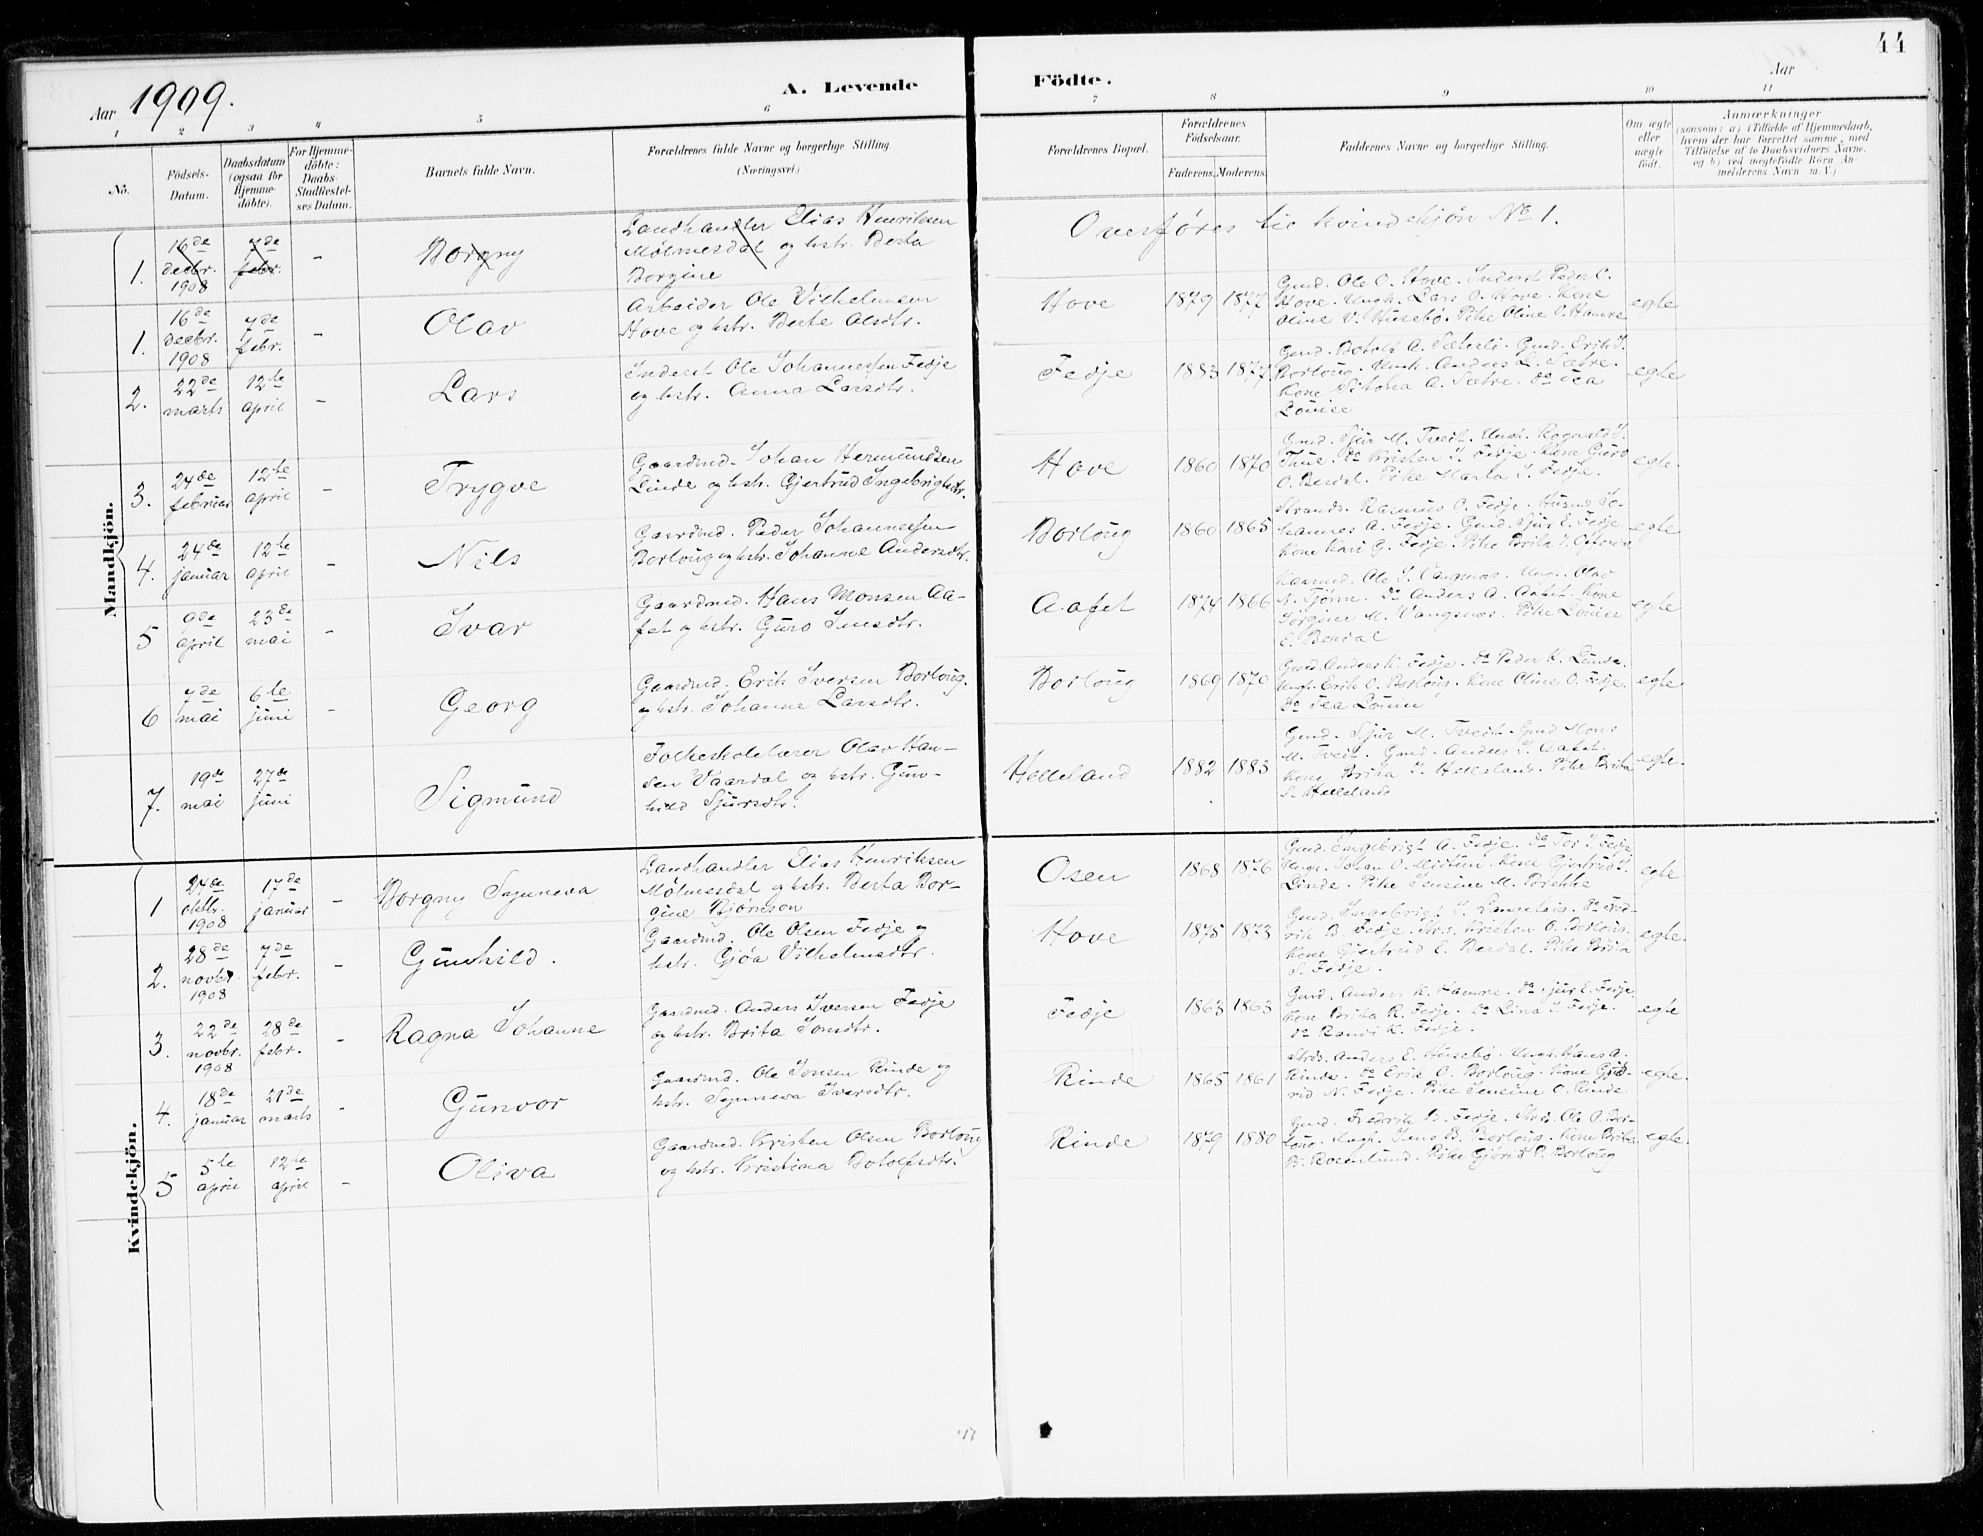 44
Aar 1909.
A. Levende
Födte.
Aar
1 2 3 4 5 6 7 8 9 10 11
No.
Födsels-Datum.
Daabsdatum (ogsaa for Hjemme-døbte).
For Hjemme-döbte: Daabs-Stadfæstel-ses Datum.
Barnets fulde Navn.
Forældrenes fulde Navne og borgerlige Stilling (Næringsvei.)
Forældrenes Bopæl.
Forældrenes Födselsaar.
Faderens. Moderens.
Faddernes Navne og borgerlige Stilling.
Om ægte eller uægte født.
Anmærkninger
(saasom: a) i Tilfælde af Hjemmedaab,
hvem der har forrettet samme, med
Tilföielse af to Daabsvidners Navne,
og b) ved uægtefödte Börn An-
melderens Navn m. V.)
Mandkjön.
1. 16de decbr. 1908 7de febr. - Borgny
Landhandler Elias Henriksen
Mølmesdal og hstr. Berta
Borgine
Overføres til kvindekjøn No 1.
1. 16de decbr. 1908 7de febr. - Olav
Arbeider Ole Vilhelmsen
Hove og hstr. Berte Olsdtr.
Hove 1879 1877
Gmd. Ole O. Hove. Inderst Peder O.
Hove. Ungk. Lars O. Hove. Kone
Oline V. Husebø. Pike Oline O. Hamre
egte
2. 22de marts 12te april - Lars
Inderst Ole Johannessen Fedje
og hstr. Anna Larsdtr.
Fedje 1883 1877
Gmd. Botolf A. Sæterli. Gmd. Erik I.
Borloug. Ungk. Anders L. Sætre.
Kone A. Sætre. do Tea
Louise
egte
3. 24de februar 12te april - Trygve
Gaardmd. Johan Hermundsen
Linde og hstr. Gjertrud Ingebrigtsdtr.
Hove 1860 1870
Gmd. Sjur M. Tveit. Ungk. Rognald
do Kristen I. Fedje. Kone Guro
O. Bendal. Pike Marta I. Fedje.
egte.
4. 24de januar 12te april - Nils
Gaardmd. Peder Johannessen
Borloug og hstr. Johanne Andersdtr.
Borloug 1860 1865
Strands. Rasmus O. Fedje. Husmd Jo-
hannes A. Fedje. Gmd. Sjur E. Fedje
Kone Kari G. Fedje. Pike Brita
egte
5 9de april 23de mai - Ivar
Gaardmd. Hans Monsen Aa-
fet og hstr. Guro Jensdtr.
Aafet 1874 1866
Kaarmd. Ole I. Vangsnes. Ungk. Olav
N. Tjørn. do Anders A. Aafet. Kone
Jørgine M. Vangsnes. Pike Louise
E. Bendal
egte
6 7de mai 6te juni - Georg
Gaardmd. Erik Iversen Borloug
og hstr. Johanne Larsdtr.
Borloug 1869 1870
Gmd. Anders K. Fedje. do Peder K. Linde.
Ungk. Erik O. Borloug. Kone Oline O. Fedje.
do Tea Louise
egte.
7. 19de mai 27de juni Sigmund
Folkeskolelærer Olav Han-
sen Vaardal og hstr. Gun-
hild Sjursdtr.
Helleland 1882 1883
Gmd. Sjur M. Tveit. Gmd Mons
M. Tveit. Gmd. Anders I. Aafet.
Kone Brita I. Helleland. Pike Brita
S. Helleland
egte.
Kvindekjön.
1 24de oktbr. 1908 17de januar - Borgny Synneva
Landhandler Elias Henriksen
Mølmesdal og hstr. Berta Bor-
gine Bjørnson
Osen 1868 1876
Gmd. Engebrigt A. Fedje. do Tor I. Fedje
Ungk. Johan O. Midtun. Kone Gjertrud I.
Linde. Pike Jensine M. Brekke
egte
2. 28de novbr 1908 7de febr. - Gunhild.
Gaardmd. Ole Olsen Fedje og
hstr. Gjøa Vilhelmsdtr.
Hove 1875 1873
Gmd. Ingebrigt I. do Fred-
rik B. Fedje. Kristen O. Borloug.
Kone Gjertrud E. Bendal. Pike Brita
S. Fedje.
egte.
3. 22de novbr. 1908 28de febr. - Ragna Johanne
Gaardmd. Anders Iversen Fedje
og hstr. Brita Jonsdtr.
Fedje 1863 1863
Gmd. Anders K. Hamre. do Sjur E. Fedje
Kone Brita R. Fedje. do Lina I. Fedje.
do Randi K. Fedje.
egte
4. 18de januar 21de marts - Gunvor
Gaardmd. Ole Jonsen Rinde og
hstr. Synneva Iversdtr.
Rinde 1865 1861
Strds. Anders E. Husebø. Ungk. Hans A.
Rinde. do Erik O. Borloug. Kone Gud-
rid N. Fedje. Pike Jensine O. Rinde
egte.
5 5te april 12te april - Oliva
Gaardmd. Kristen Olsen Borloug
og hstr. Kristina Botolfsdtr.
Rinde 1879 1880
Gmd. Fredrik B. Fedje. Strds. Ole O. Bor-
loug. Ungk. Jens B. Borloug. Kone Brita
B. Rosenlund. Pike Gjørid P. Borloug
egte.